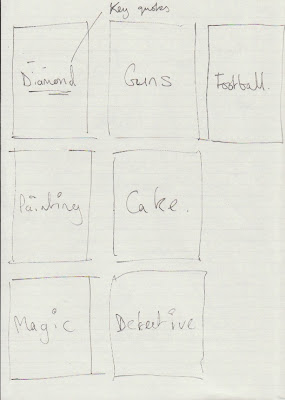 Key quotes
Diamond
Guns
Football.
Painting
Cake.
Magic
Detective